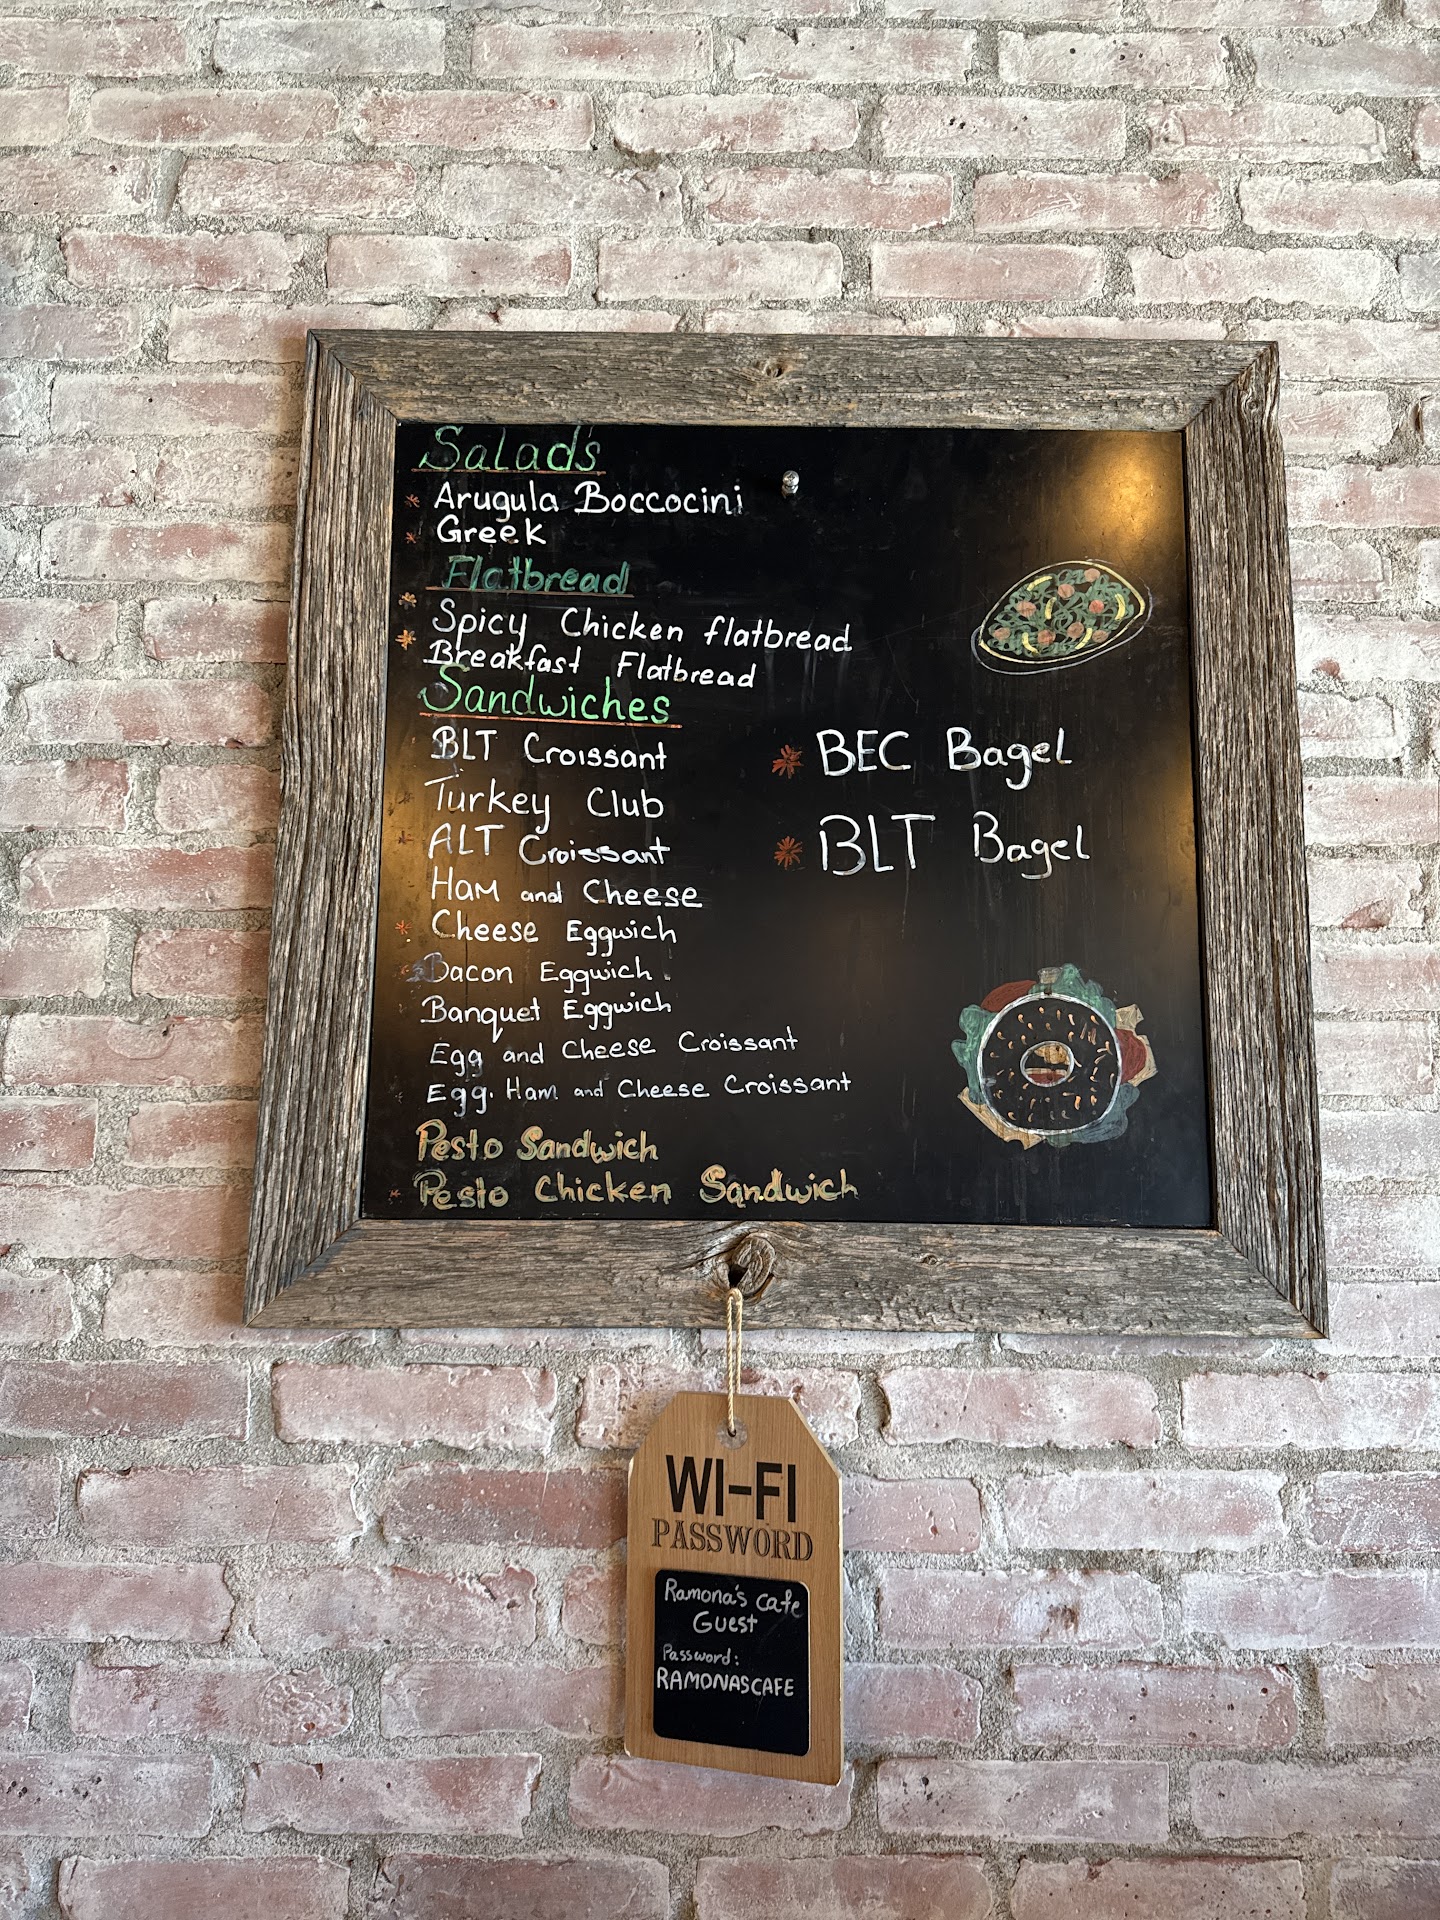 Salad's
Arugula Boccocini
Greek
Flatbread
Spicy Chicken flatbread
Breakfast Flatbread
Sandwiches
BLT Croissant
Turkey Club
ALT Croissant
Ham and Cheese
Cheese Eggwich
Bacon Eggwich
Banquet Eggwich
Egg and Cheese Croissant
Egg. Ham and Cheese Croissant
Pesto Sandwich
Pesto Chicken Sandwich
BEC Bagel
BLT Bagel
WI-FI
PASSWORD
Ramona's cafe
Guest
Password:
RAMONASCAFE